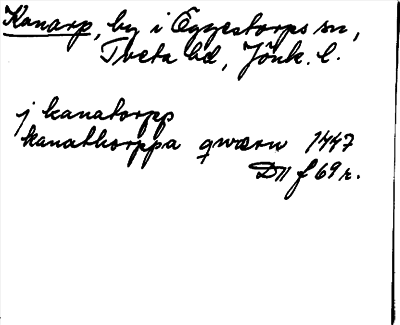 Kanarp, by i Eggestorps sn,
Tveta hd, Jönk. l.
j kanatorpp
kanathorppa qwærn 1447
D11 f 69 r.